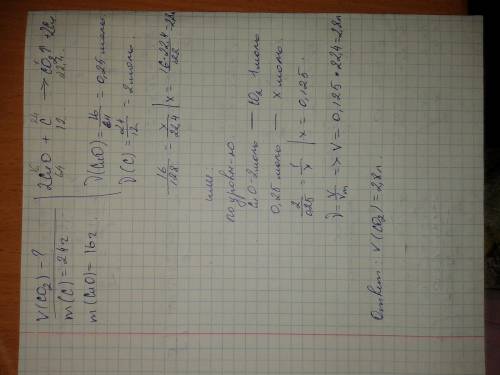 V(CO₂) - ?
m(C) = 24 г
m(CuO) = 16 г
16 24 x
2CuO + C → CO₂↑ + 2Cu
64 12 22,4
ν(CuO) = 16/64 = 0,25 моль
ν(C) = 24/12 = 2 моль
16/128 = x/22,4 | x =
или
по уровн-ю
CuO - 2 моль — CO₂ 1 моль
0,25 моль — x моль
2/0,25 = 1/x | x = 0,125
ν = V/Vm => V = 0,125 * 22,4 = 2,8л
Ответ: V(CO₂) = 2,8л.